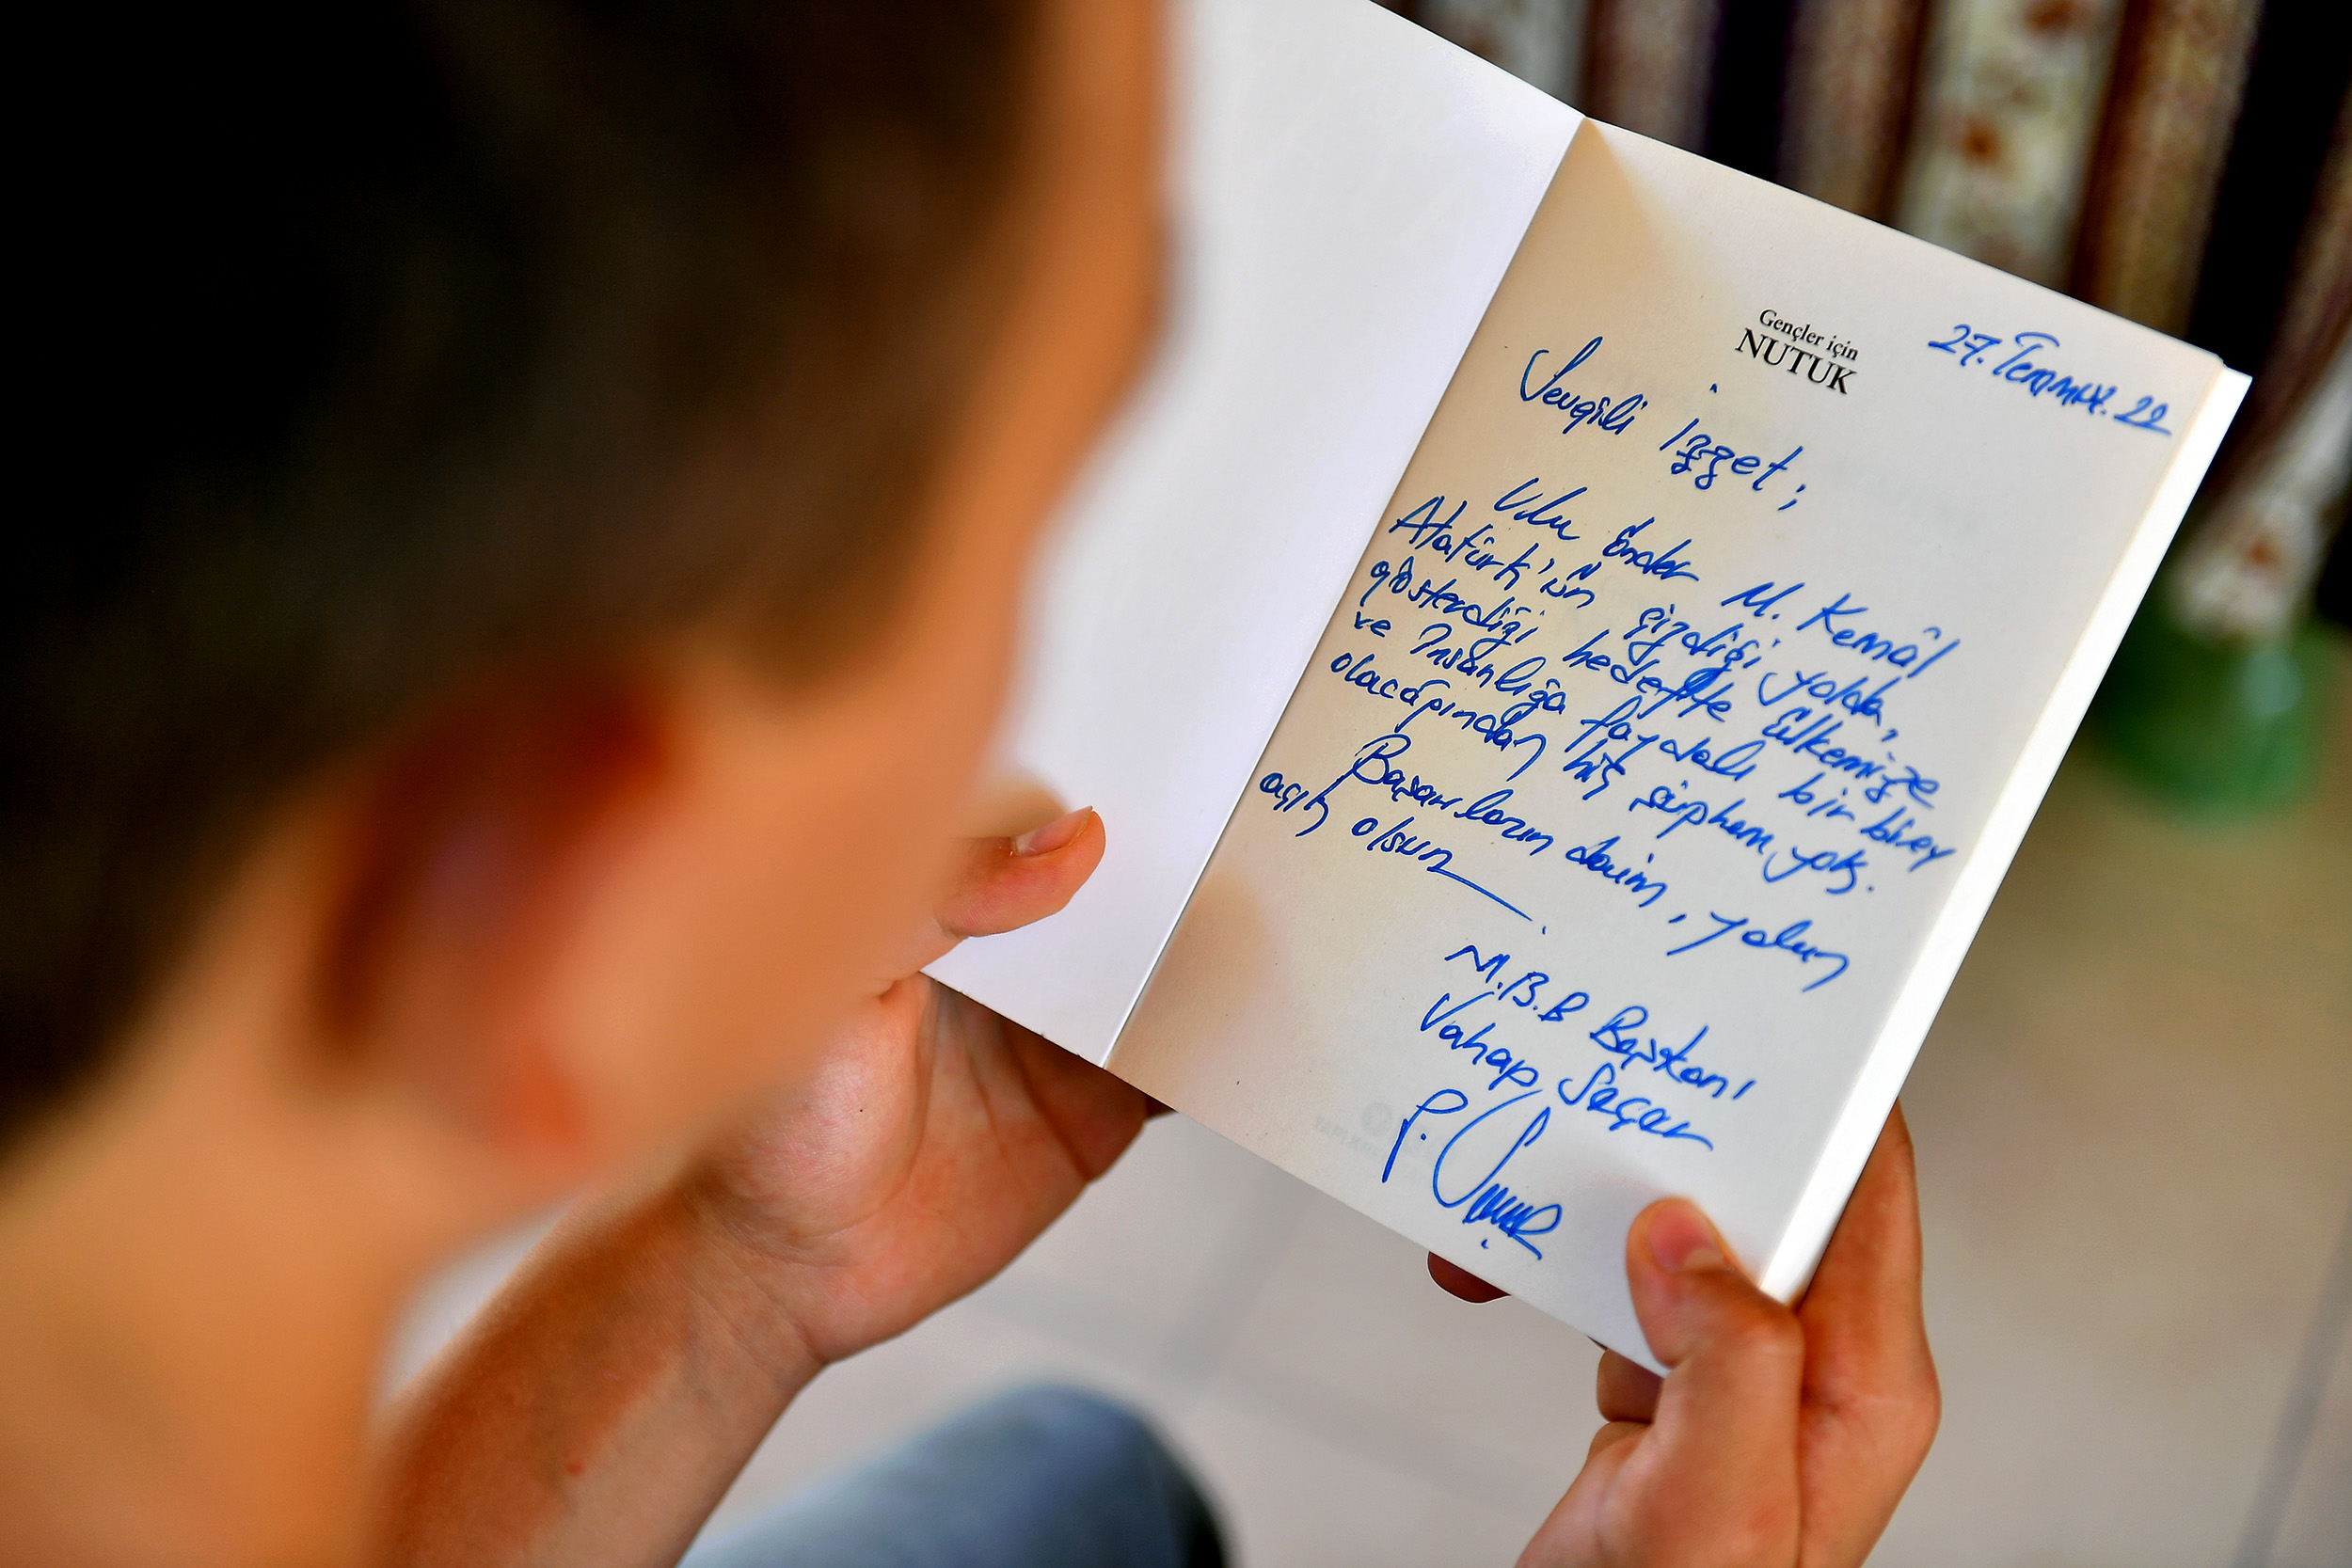 Gençler için
NUTUK
27. Temmuz. 22
Sevgili İzzet;
Ulu Önder M. Kemâl
Atatürk'ün çizdiği yolda,
gösterdiği hedefte Ülkemize
ve İnsanlığa faydalı bir birey
olacağından hiç şüphem yok.
Başarıların daim, yolun
açık olsun
M.B.B Başkanı
Vahap Seçer